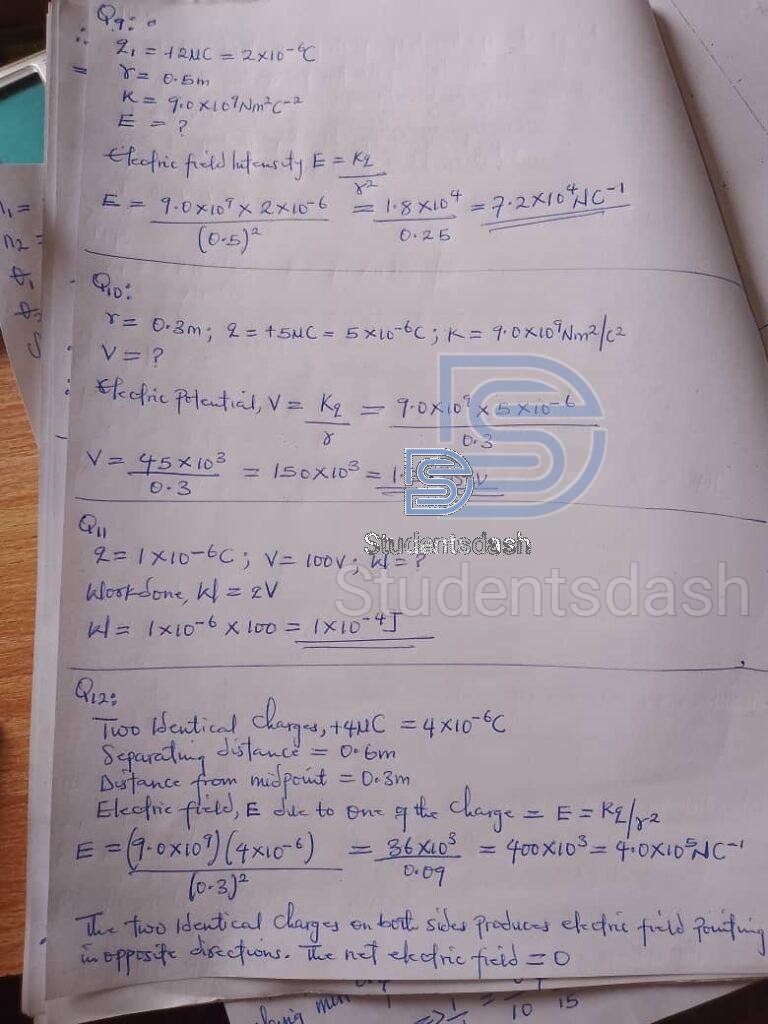 Q9:
∴ q1 = +2μC = 2×10^-6C
= r = 0.5m
K = 9.0×10^9Nm^2C^-2
E = ?
Electric field Intensity E = Kq/r^2
E = 9.0×10^9 × 2×10^-6/(0.5)^2 = 1.8×10^4/0.25 = 7.2×10^4NC^-1
Q10:
r = 0.3m; q = +5μC = 5×10^-6C; K = 9.0×10^9Nm^2/C^2
V = ?
Electric Potential, V = Kq/r = 9.0×10^9 × 5×10^-6/0.3
V = 45×10^3/0.3 = 150×10^3 =
Q11
q = 1×10^-6C; V = 100V; W = ?
Studentsdash
Workdone, W = qV
Studentsdash
W = 1×10^-6 × 100 = 1×10^-4J
Q12:
Two Identical Charges, +4μC = 4×10^-6C
Separating distance = 0.6m
Distance from midpoint = 0.3m
Electric field, E due to one of the Charge = E = Kq/r^2
E = (9.0×10^9)(4×10^-6)/(0.3)^2 = 36×10^3/0.09 = 400×10^3 = 4.0×10^5NC^-1
The two identical charges on both sides produces electric field pointing
in opposite directions. The net electric field = 0
10 15
n2 =